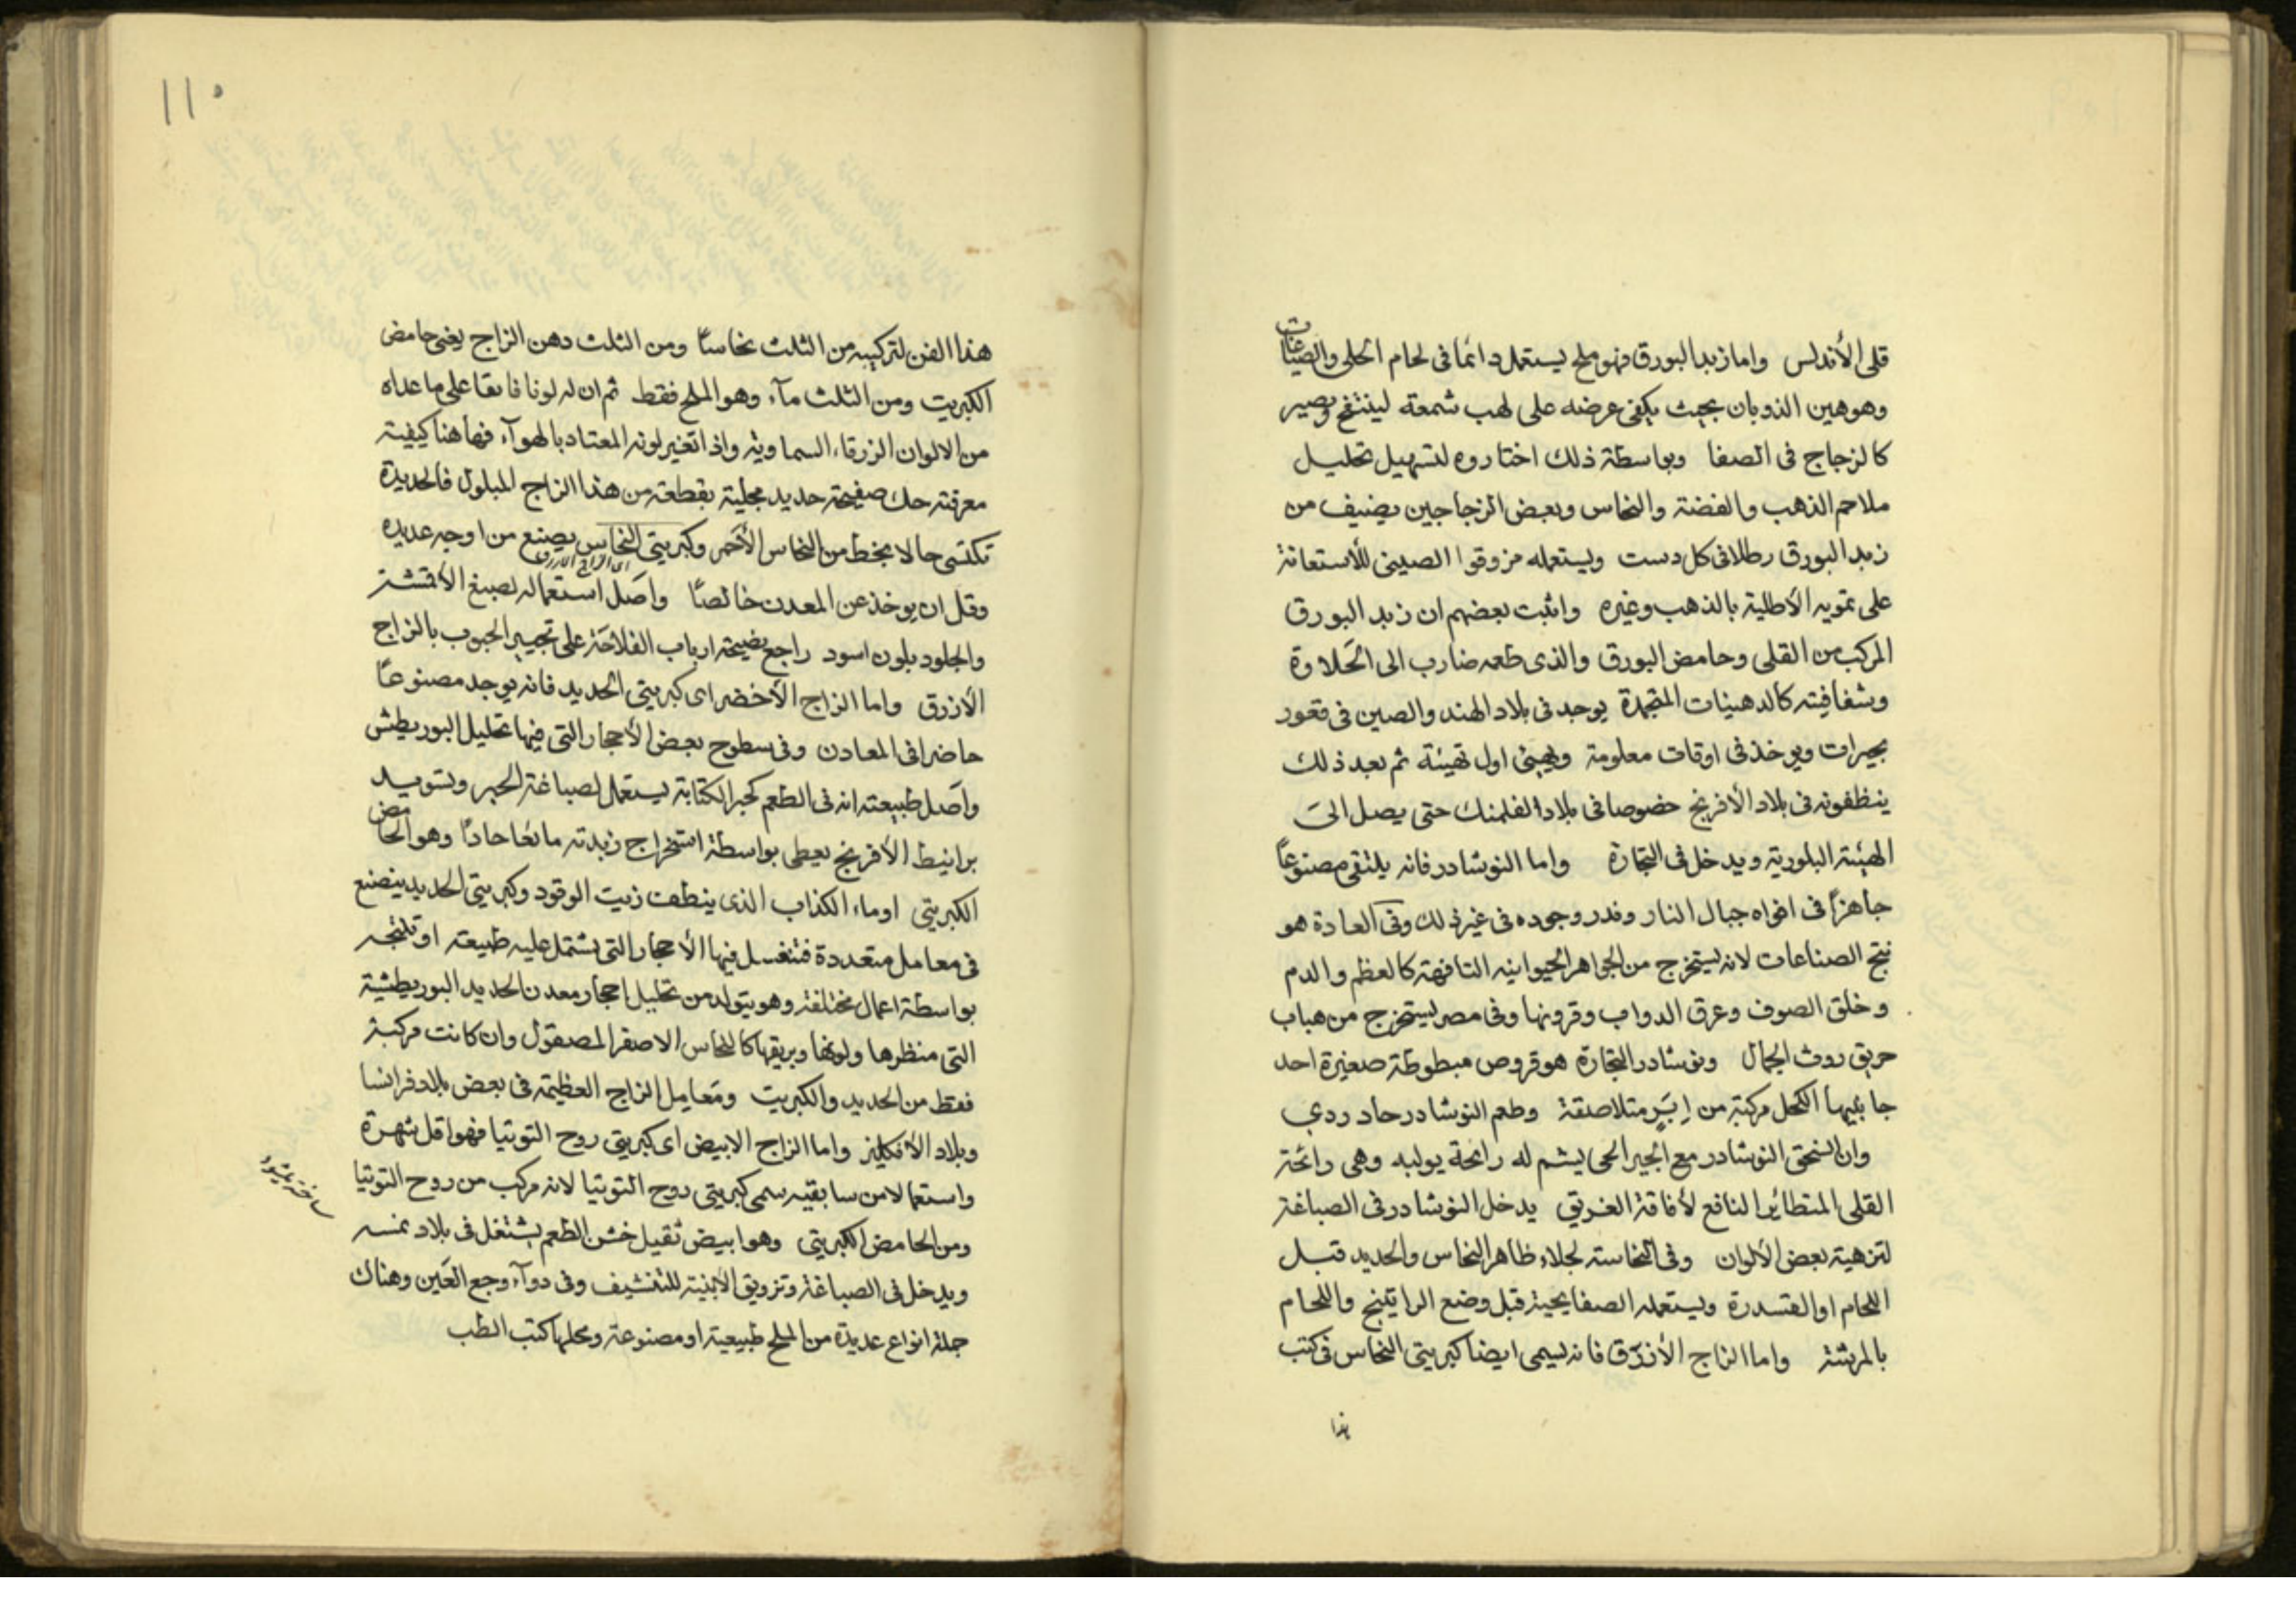 قلى الأندلس واما زبد البورق فهو ملح يستعمل دائما فى لحام الحلى والصياغات
وهو هين الذوبان بحيث يكفى عرضه على لهب شمعة لينتفخ ويصير
كالزجاج فى الصفا وبواسطة ذلك اختاروه لتسهيل تحليل
ملاحم الذهب والفضة والنحاس وبعض الزجاجين يضيف من
زبد البورق رطلا فى كل دست ويستعمله مزوقوا الصينى للأستعانة
على تمويه الأطلية بالذهب وغيره واثبت بعضهم ان زبد البورق
المركب من القلى وحامض البورق والذى طعمه ضارب الى الحلاوة
وشفافيته كالدهينات المتجمدة يوجد فى بلاد الهند والصين فى قعور
بحيرات ويوخذ فى اوقات معلومة ويهيئ اول تهيئة ثم بعد ذلك
ينظفونه فى بلاد الأفرنج خصوصا فى بلاد الفلمنك حتى يصل الى
الهيئة البلورية ويدخل فى التجارة واما النوشادر فانه يلتقى مصنوعًا
جاهزًا فى افواه جبال النار وندر وجوده فى غير ذلك وفى العادة هو
نتج الصناعات لانه يستخرج من الجواهر الحيوانيه التافهة كالعظم والدم
وخلق الصوف وعرق الدواب وقرونها وفى مصر يستخرج من هباب
حريق روث الجمال ونوشادر التجارة هو قروص مبطوطة صغيرة احد
جانبيها اكحل مركبة من اِبَرٍ متلاصقة وطعم النوشادر حاد ردي
وان انسحق النوشادر مع الجير الحى يشم له رائحة بولية وهى رائحة
القلى المتطائير النافع لأفاقة الغريق يدخل النوشادر فى الصباغة
لتزهية بعض الألوان وفى النحاسة لجلاء ظاهر النحاس والحديد قبل
اللحام او القسدرة ويستعمله الصفايحية قبل وضع الراتينج واللحام
بالمرشة واما الزاج الأزرق فانه يسمى ايضا كبريتى النحاس فى كتب
هذا
١١٠
هذا الفن لتركيبه من الثلث نحاسًا ومن الثلث دهن الزاج يعنى حامض
الكبريت ومن الثلث مآء وهو الملح فقط ثم ان له لونا فايقا على ما عداه
من الالوان الزرقاء السماوية واذا تغير لونه المعتاد بالهوآء فها هنا كيفية
معرفته حك صفيحة حديد مجلية بقطعة من هذا الزاج المبلول فالحديدة
تكتسى حالا بخط من النحاس الأحمر وكبريتى النحاس يصنع من اوجه عديده
اى الزاج الازرق
وقل ان يوخذ عن المعدن خالصًا واصل استعماله لصبغ الأقمشة
والجلود بلون اسود راجع نصيحة ارباب الفلاحة على تجيير الحبوب بالزاج
الأزرق واما الزاج الأخضر اى كبريتى الحديد فانه يوجد مصنوعًا
حاضرا فى المعادن وفى سطوح بعض الأحجار التى فيها تحليل البوريطش
واصل طبيعته انه فى الطعم كحبر الكتابة يستعمل لصباغة الحبر وتسويد
برانيط الأفرنج يعطى بواسطة استخراج زبدته مائعا حادًا وهو الحامض
الكبريتى او ماء الكذاب الذى ينظف زيت الوقود وكبريتى الحديد ينصنع
فى معامل متعددة فتنغسل فيها الأحجار التى تشتمل عليه طبيعة او تنتجه
بواسطة اعمال مختلفة وهو يتولد من تحليل احجار معدن الحديد البوريطشية
التى منظرها ولونها وبريقها كالنحاس الاصفر المصقول وان كانت مركبة
فقط من الحديد والكبريت ومعامل الزاج العظيمة فى بعض بلاد فرانسا
وبلاد الأنكليز واما الزاج الابيض اى كبريتى روح التوتيا فهو اقل شهرة
واستعمالا من سابقيه سمى كبريتى روح التوتيا لانه مركب من روح التوتيا
ومن الحامض الكبريتى وهو ابيض ثقيل خشن الطعم يشتغل فى بلاد نمسه
ويدخل فى الصباغة وتزويق الأبنية للتنشيف وفى دوآء وجع العين وهناك
جملة انواع عديدة من الملح طبيعية او مصنوعة ومحلها كتب الطب